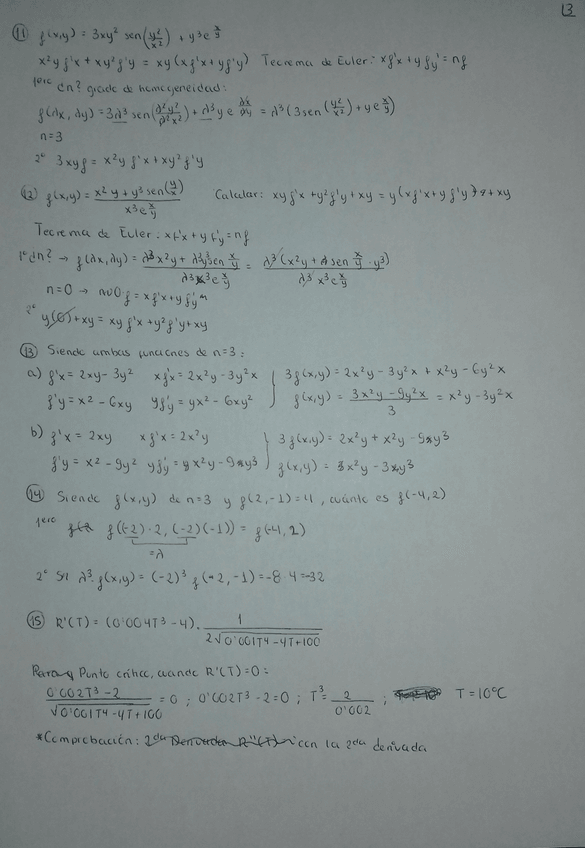 13
11) f(x,y) = 3xy² sen(y²/x²) + y³e^(x/y)
x²y f'x + xy² f'y = xy(xf'x + yf'y) Teorema de Euler: xf'x + yf'y = nf
1ero ¿n? grado de homogeneidad:
f(λx, λy) = 3λ³ sen(λ²y²/λ²x²) + λ³y e^(λx/λy) = λ³(3sen(y²/x²) + ye^(x/y))
n=3
2º 3xyf = x²y f'x + xy² f'y
12) f(x,y) = (x²y + y³sen(y/x))/(x³e^(x/y)) Calcular: xyf'x + y²f'y + xy = y(xf'x + yf'y) + xy
Teorema de Euler: xf'x + yf'y = nf
1º ¿n? → f(λx, λy) = (λ³x²y + λ³y³sen x/y)/(λ³x³e^(x/y)) = λ³(x²y + sen x/y · y³)/(λ³x³e^(x/y))
n=0 → 0f = xf'x + yf'y
2º y(0) + xy = xyf'x + y²f'y + xy
13) Siendo ambas funciones de n=3:
a) f'x = 2xy - 3y² xf'x = 2x²y - 3y²x } 3f(x,y) = 2x²y - 3y²x + x²y - 6y²x
f'y = x² - 6xy yf'y = yx² - 6xy² f(x,y) = (3x²y - 9y²x)/3 = x²y - 3y²x
b) f'x = 2xy xf'x = 2x²y } 3f(x,y) = 2x²y + x²y - 9y³
f'y = x² - 9y² yf'y = x²y - 9y³ f(x,y) = x²y - 3y³
14) Siendo f(x,y) de n=3 y f(2,-1)=4, cuánto es f(-4,2)
1ero f((-2)·2, (-2)(-1)) = f(-4,2)
=λ
2º λ³·f(x,y) = (-2)³ f(-2,-1) = -8·4 = -32
15) R'(T) = (0'004T³ - 4) · 1/(2√(0'001T⁴ - 4T + 100))
Para Punto crítico, cuando R'(T)=0:
(0'002T³ - 2)/√(0'001T⁴ - 4T + 100) = 0 ; 0'002T³ - 2 = 0 ; T³ = 2/0'002 ; T = 10ºC
*Comprobación: 2da Derivada R''(T) con la 2da derivada